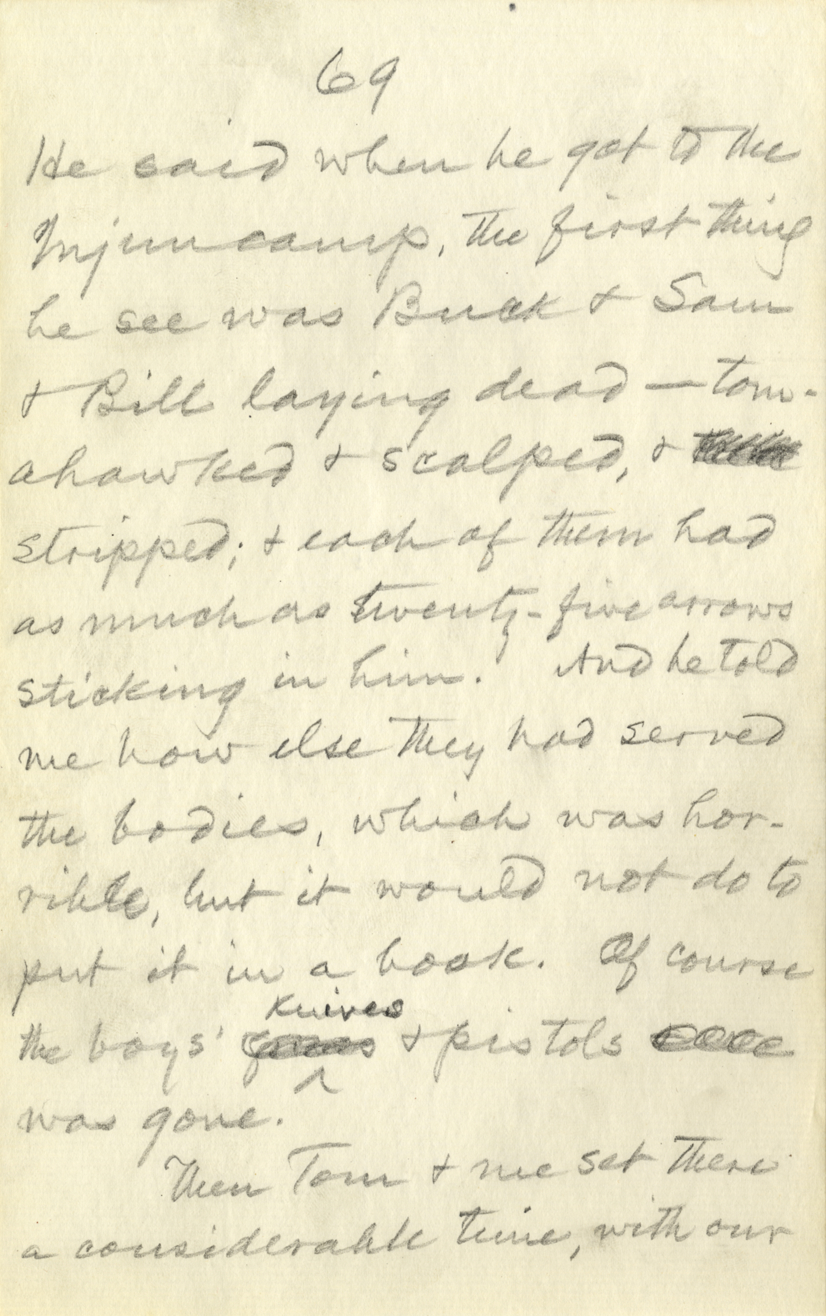 69
He said when he got to the
Injun camp, the first thing
he see was Buck & Sam
& Bill laying dead — tom-
ahawked & scalped, &
stripped; & each of them had
as much as twenty-five arrows
sticking in him. And he told
me how else they had served
the bodies, which was hor-
rible, but it would not do to
put it in a book. Of course
knives
the boys' & pistols
was gone.
Then Tom & me set there
a considerable time, with our